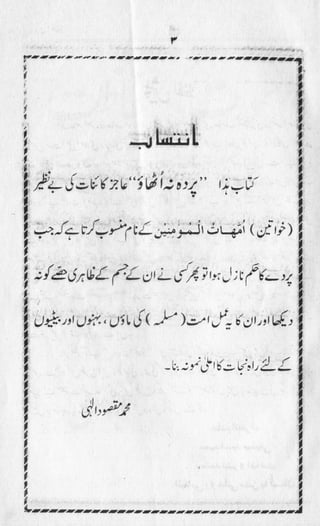 ۳
انتساب
کتاب ہٰذا ”پردہ نہ اُٹھاؤ“ عاجز کائنات کی بے نظیر
(خواتین) اُمَّهَاتُ الْمُؤمِنِین کے نام منسوب کرتا ہے کہ جب
پردے کا حکم نازل ہوا تو پھر کسی نے ان کے جسم کے ظاہری حصّے کو نہ
دیکھا اور ان کا یہ عمل امت (مسلمہ) کی ماؤں، بہنوں اور بیٹیوں
کے لئے راہ نجات کا اعلیٰ نمونہ بنا۔
محمد مقصود الٰہی